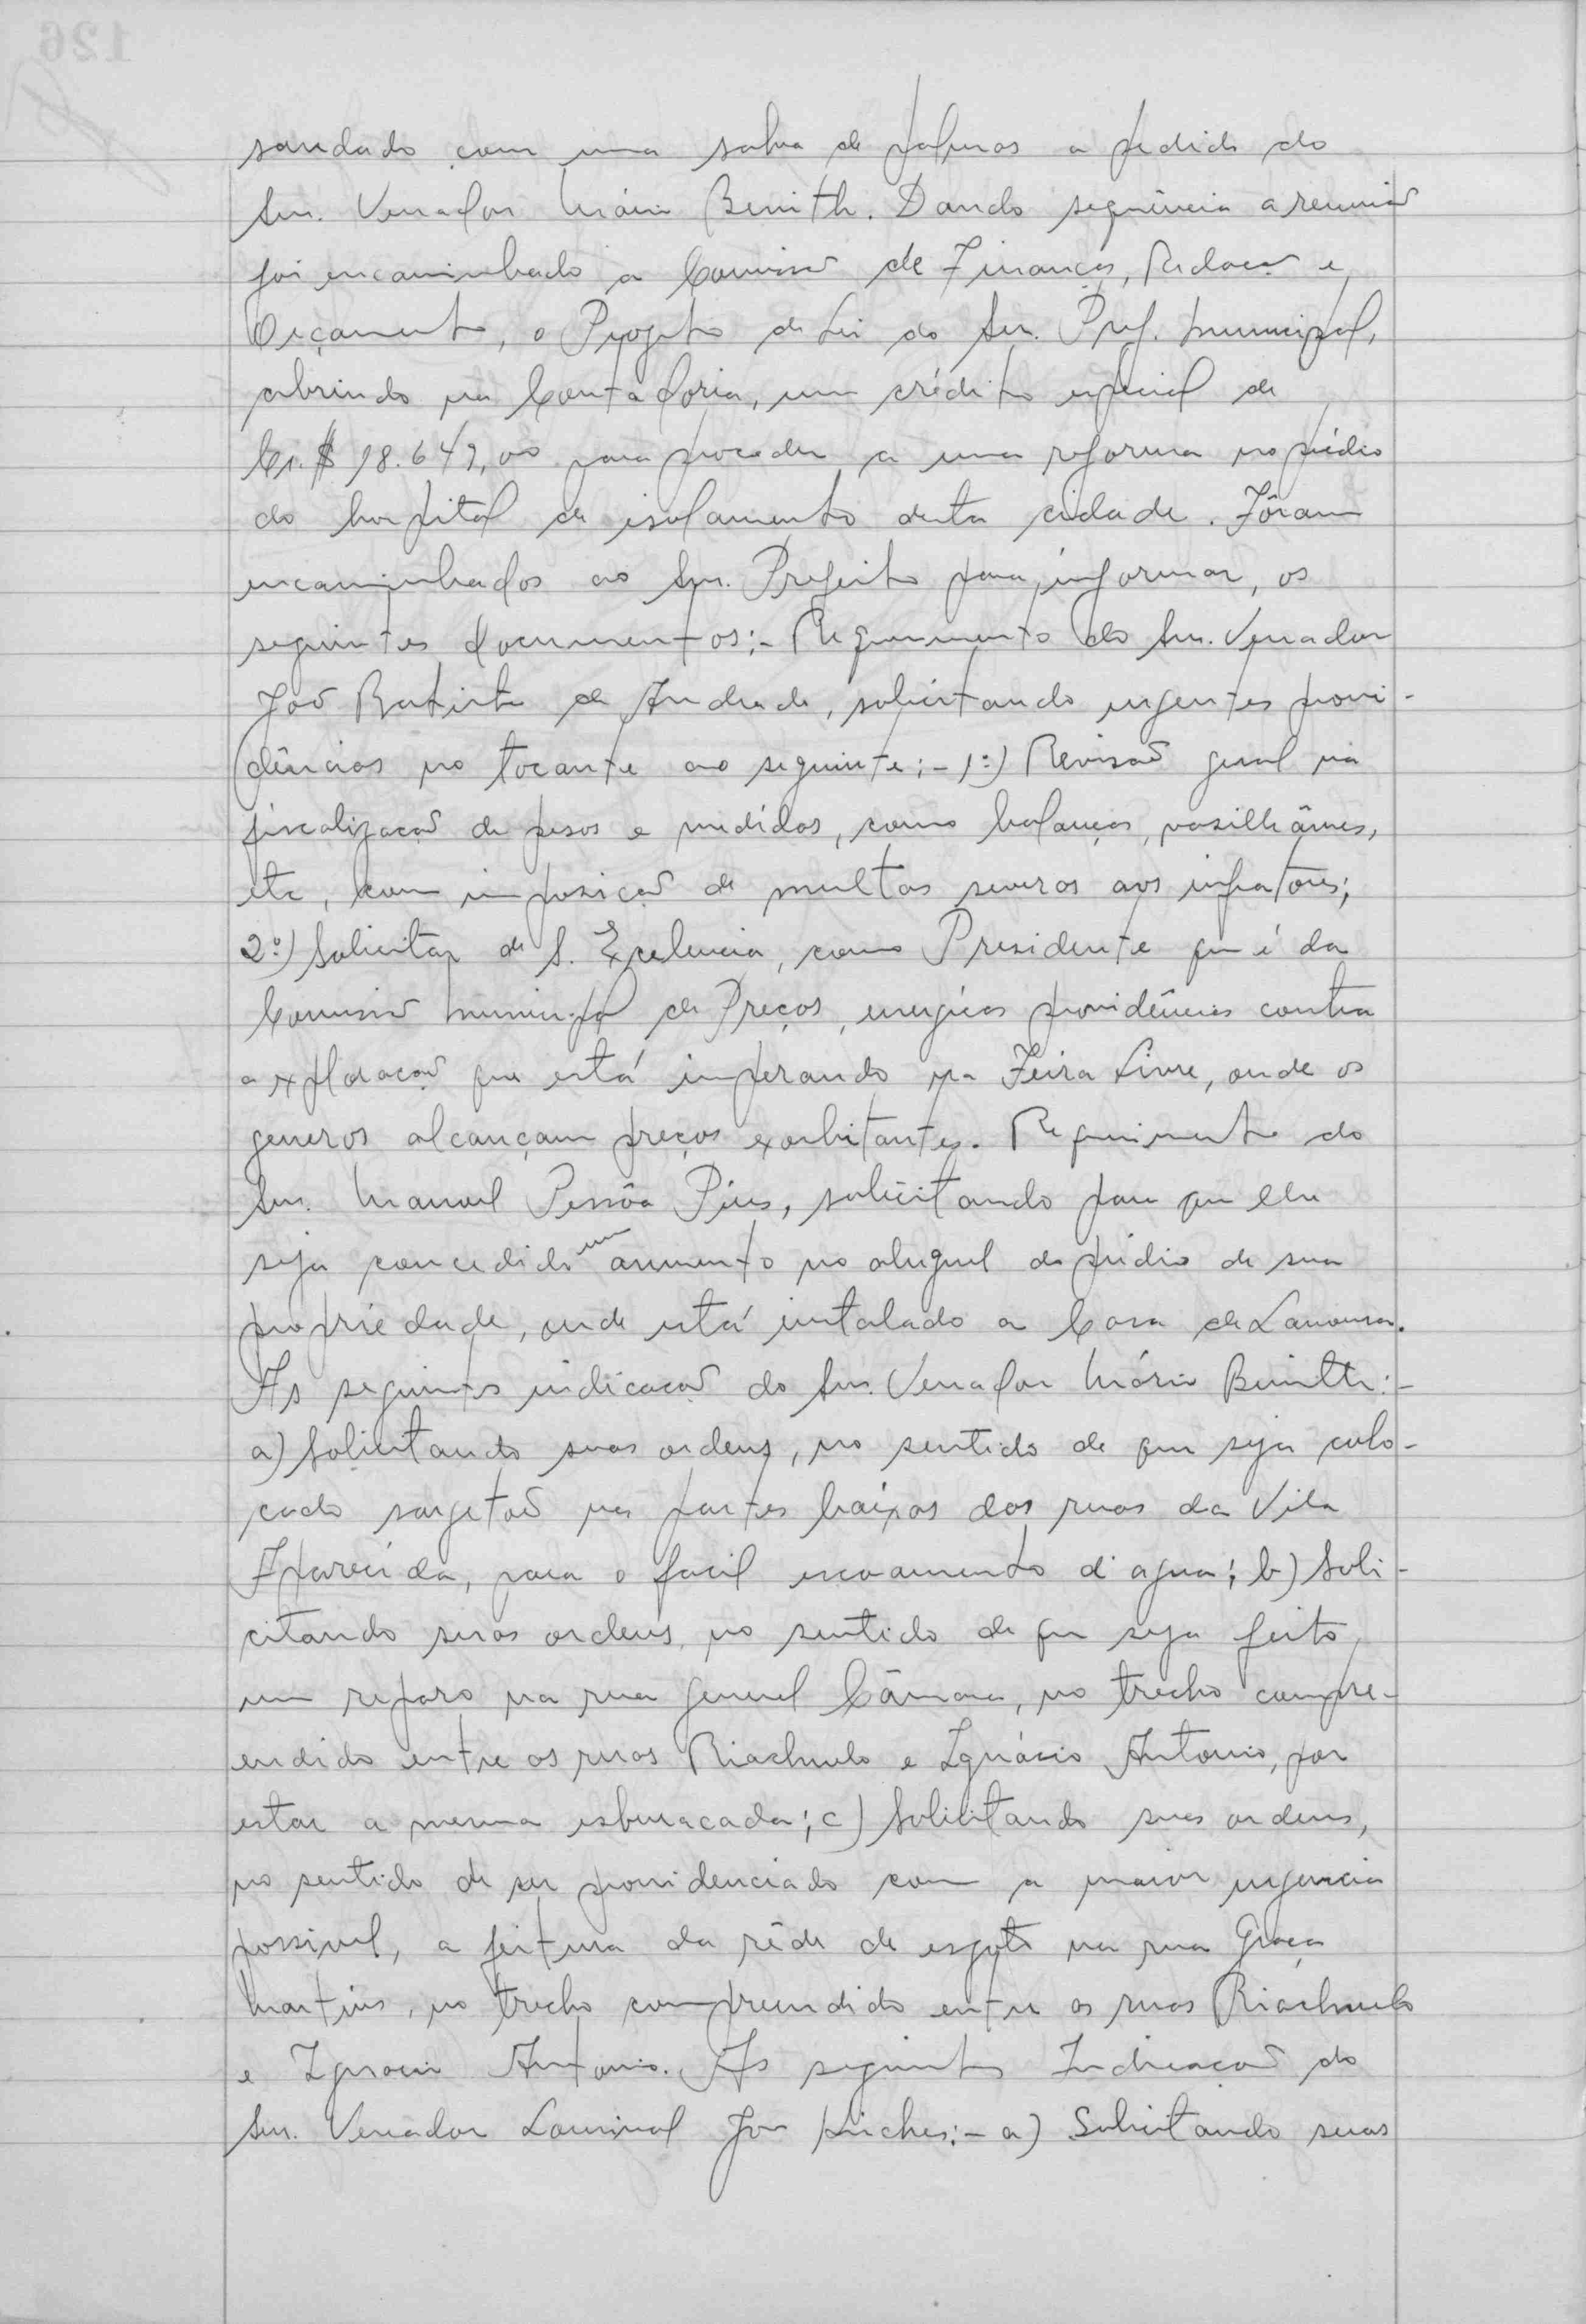 saudado com uma salva de palmas a pedido do
Snr. Vereador Mário Benith. Dando sequência a reunião
foi encaminhado a Comissão de Finanças, Redação e
Orçamento, o Projeto de Lei do Snr. Pref. Municipal,
abrindo na Contadoria, um crédito especial de
Cr.$ 18.649,00 para proceder a uma reforma no prédio
do hospital de isolamento desta cidade. Fôram
encaminhados ao Snr. Prefeito para informar, os
seguintes documentos:- Requerimento do Snr. Vereador
João Batista de Andrade, solicitando urgentes provi-
dências no tocante ao seguinte:- 1º) Revisão geral na
fiscalização de pesos e medidas, como balanças, vasilhâmes,
etc, com imposição de multas severas aos infratores;
2º) Solicitar de S. Excelencia, como Presidente que é da
Comissão Municipal de Preços, energicas providências contra
a exploração que está imperando na Feira Livre, onde os
generos alcançam preços exorbitantes. Requerimento do
Snr. Manoel Pessôa Pires, solicitando para que lhe
seja concedido um aumento no aluguel do prédio de sua
propriedade, onde está instalado a Casa da Lavoura.
As seguintes indicação do Snr. Vereador Mário Benith:-
a) Solicitando suas ordens, no sentido de que seja colo-
cado sargetão nas partes baixas das ruas da Vila
Aparecida, para o facil escoamento d'agua; b) Soli-
citando suas ordens, no sentido de que seja feito,
um reparo na rua General Câmara, no trecho compre-
endido entre as ruas Riachuelo e Ignácio Antonio, por
estar a mesma esburacada; c) Solicitando suas ordens,
no sentido de ser providenciado com a maior urgencia
possivel, a feitura da rêde de esgoto na rua Graça
Martins, no trecho compreendido entre as ruas Riachuelo
e Ignacio Antonio. As seguintes Indicação do
Snr. Vereador Lourival José :- a) Solicitando suas